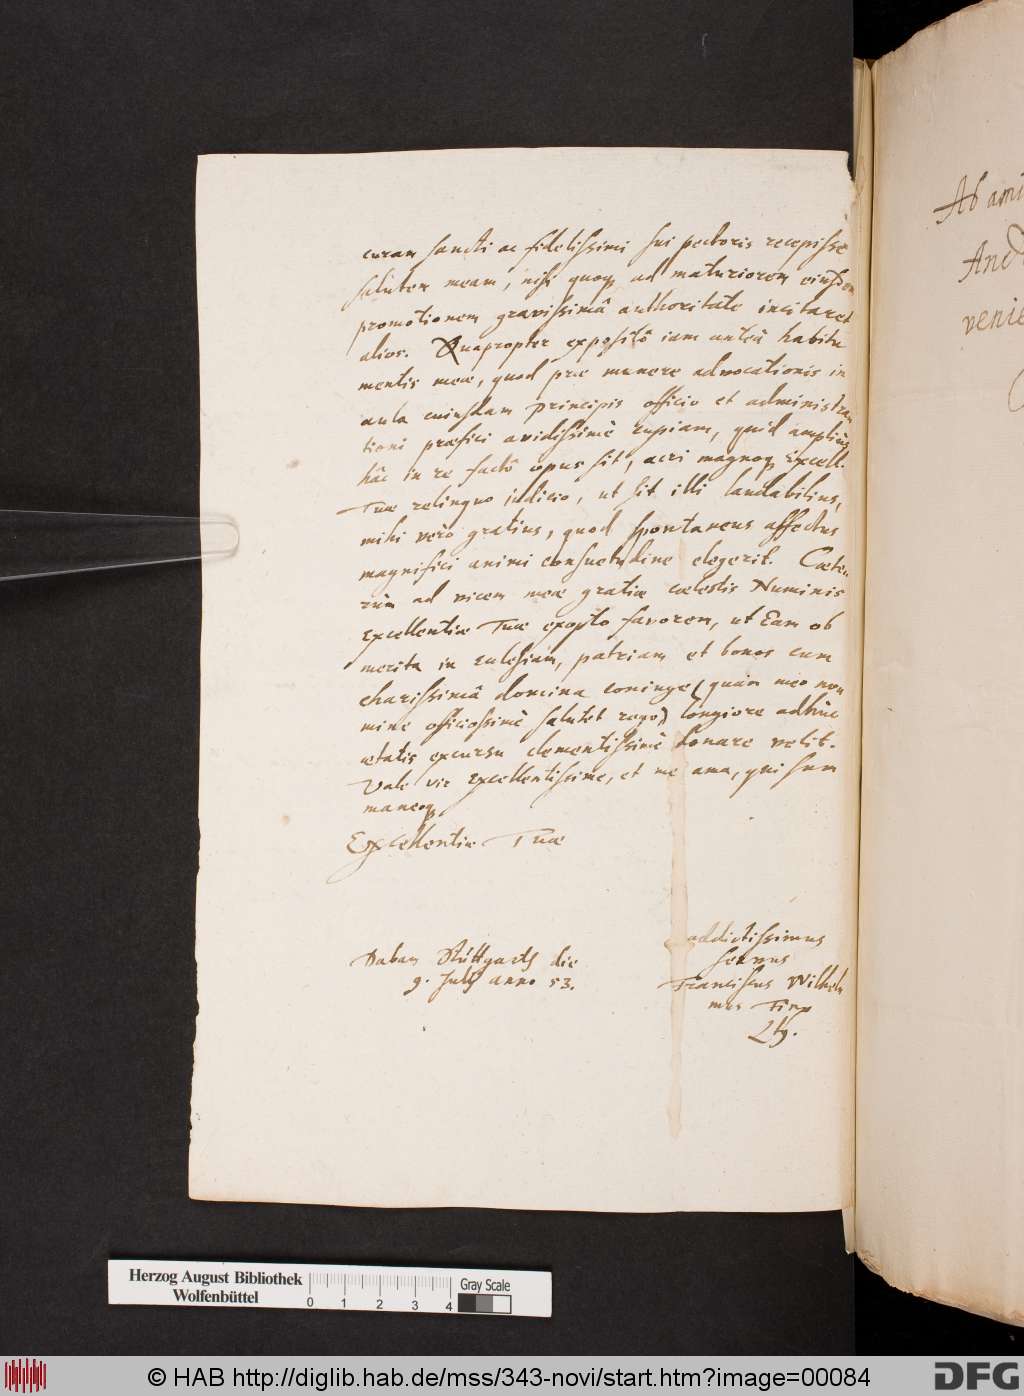 curam sancti ac fidelissimi sui pectoris recepisse
salutem meam, nisi quoq ad maturiorem eiusdem
promotionem gravissimâ authoritate incitaret
alios. Quapropter expositô iam anteà habitu
mentis meæ, quod præ munere advocationis in
aula cuiusdam principis officio et administra
tioni præfici avidissimè cupiam, quid ampliùs
hâc in re factô opus sit, acri magnoq Excell.
Tuæ relinquo iudicio, ut sit illi laudabilius,
mihi verò gratius, quod spontaneus affectus
magnifici animi consuetudine elegerit. Cæte
rùm ad vicem meæ gratiæ cœlestis Numinis
Excellentiæ Tuæ exopto favorem, ut Eam ob
merita in ecclesiam, patriam et bonos cum
charissimâ domina coniuge (quàm meo no
mine officiosissimè salutet rogo) longiore adhuc
ætatis excursu clementissimè donare velit.
Vale vir Excellentissime, et me ama, qui sum
maneoq
Excellentiæ Tuæ
addictissimus
servus
Franciscus Wilhel
mus
Dabam Stuttgarts die
9. July anno 53.
Ab ami
And
venie
Herzog August Bibliothek
Wolfenbüttel
0 1 2 3 4
Gray Scale
© HAB http://diglib.hab.de/mss/343-novi/start.htm?image=00084
DFG